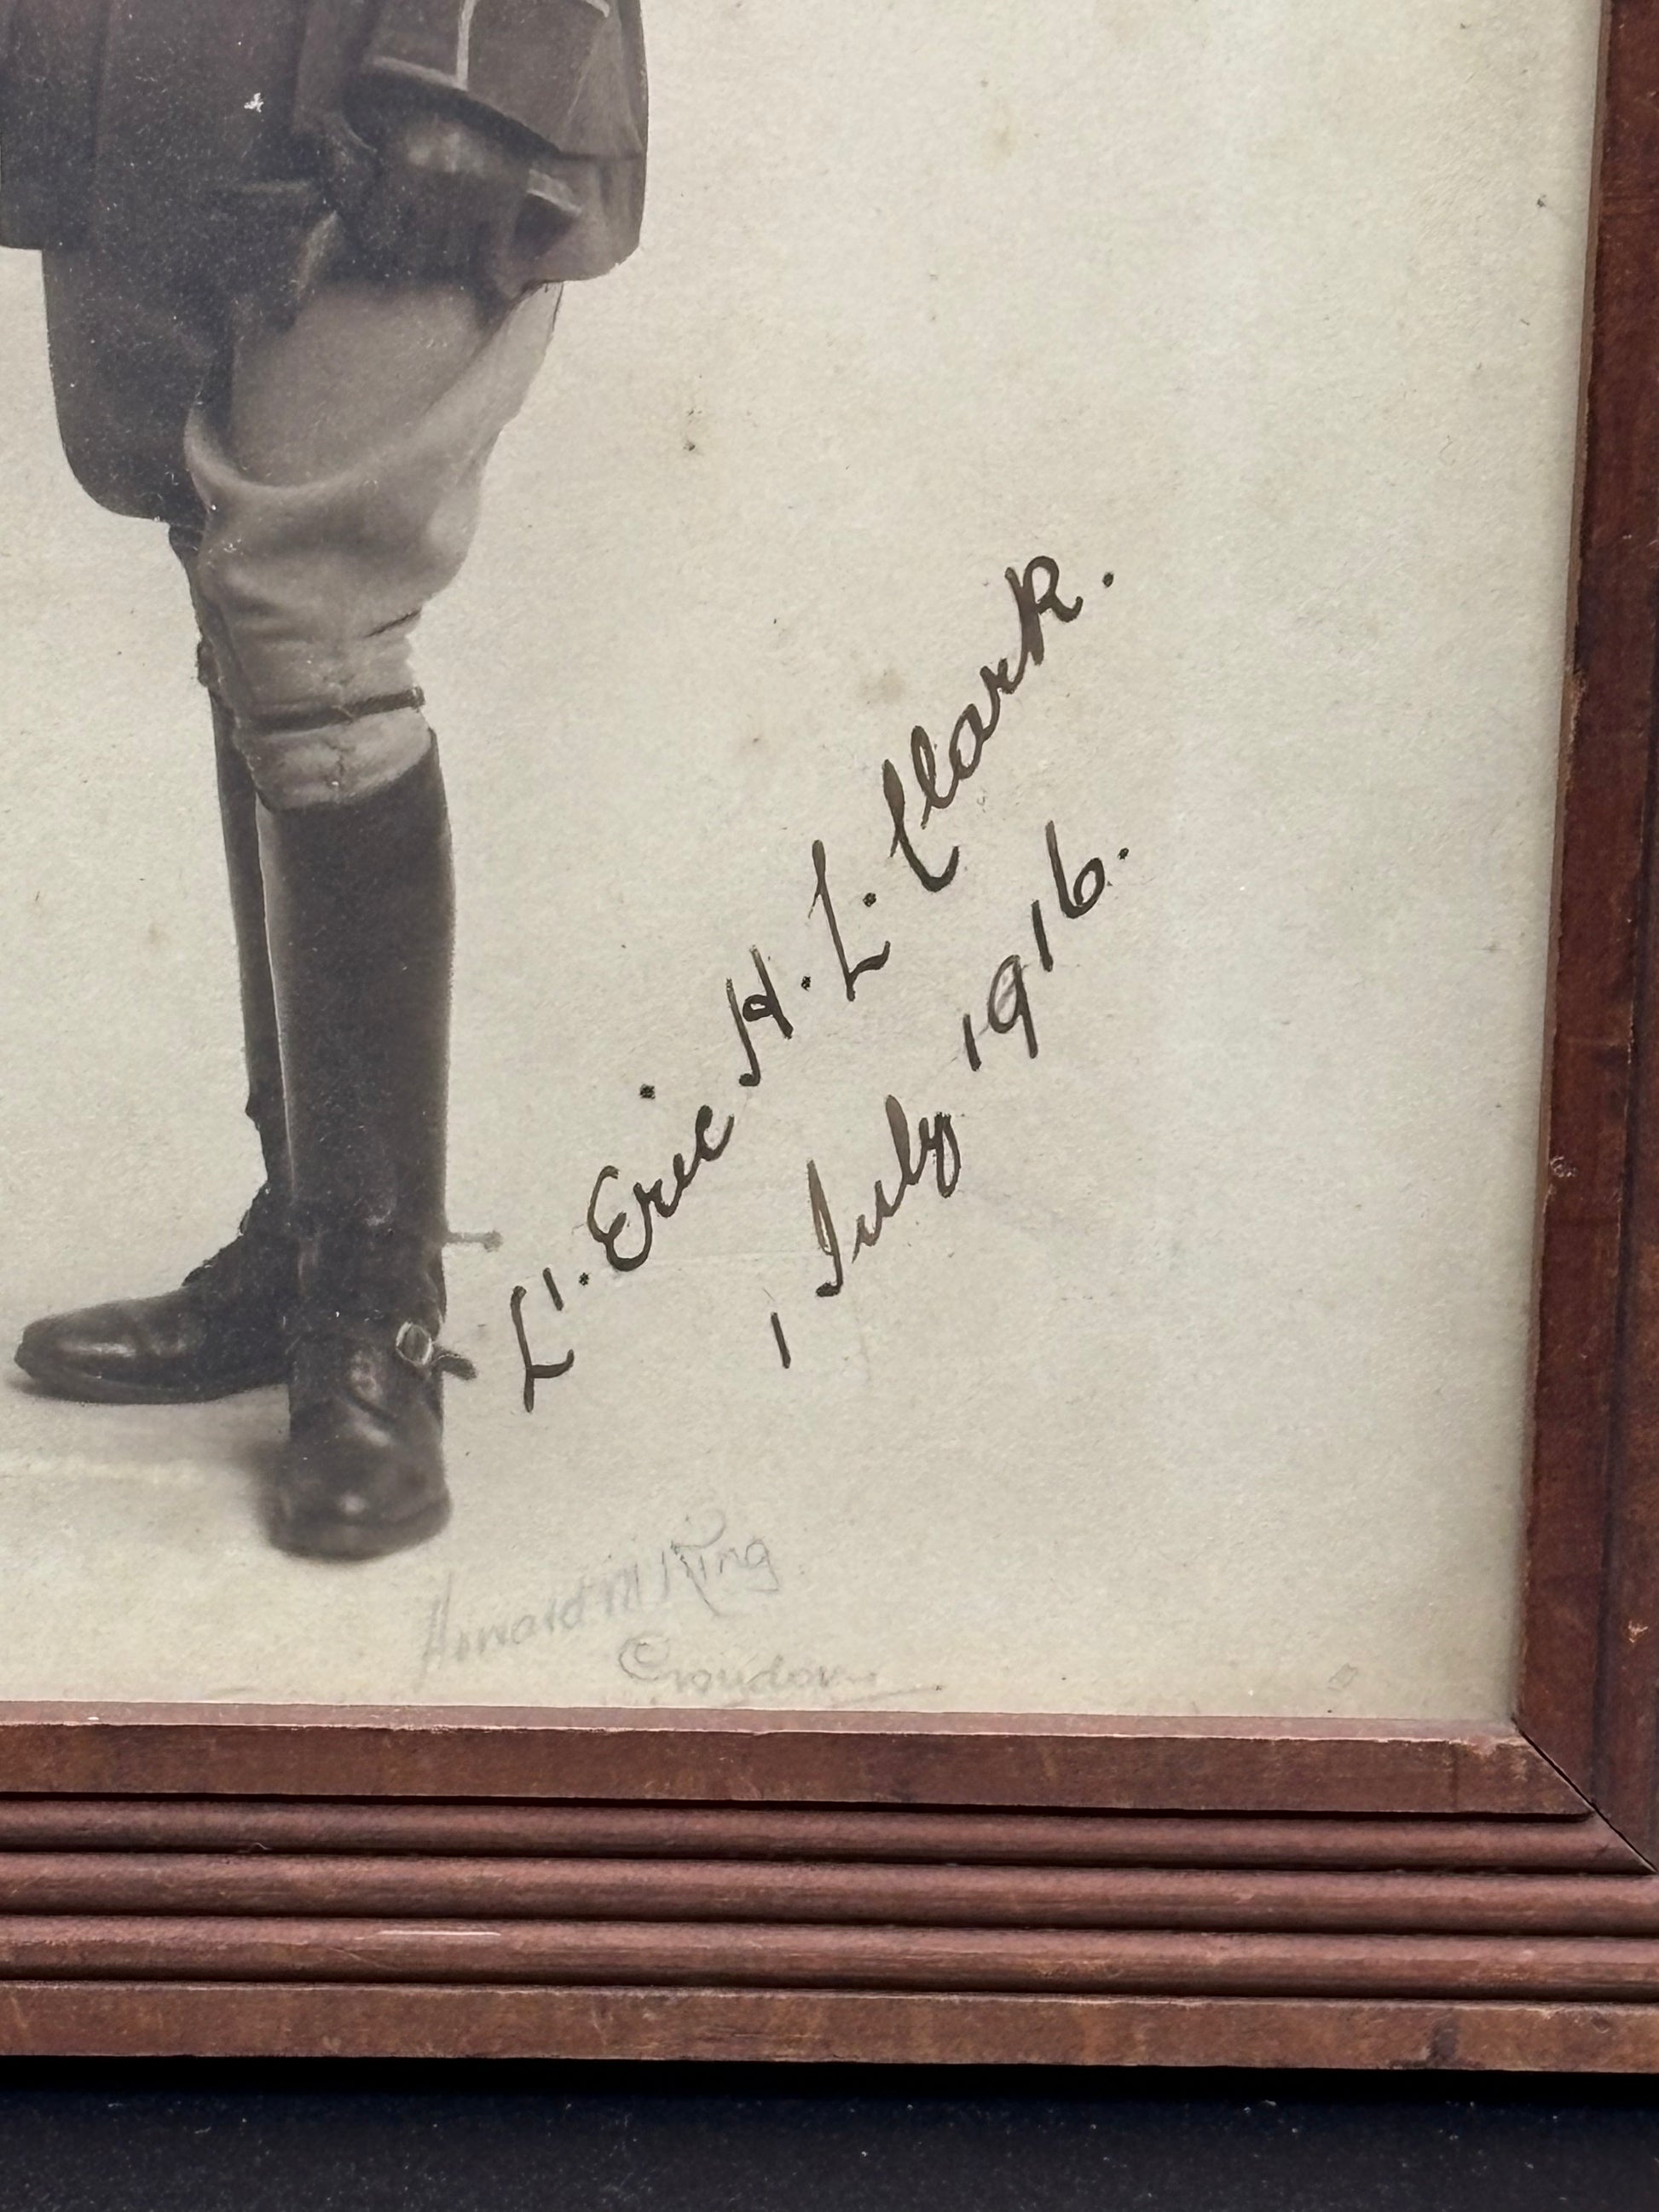 Lt. Eric H. L. Clark.
1 July 1916.
Howard M King
Croydon